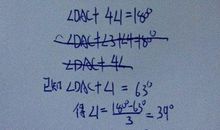 ∠DAC+4∠1=180°
∠DAC+∠3+∠4=180°
∠DAC+4∠
已知∠DAC+∠1=63°
得∠1=(180°-63°)/3=39°